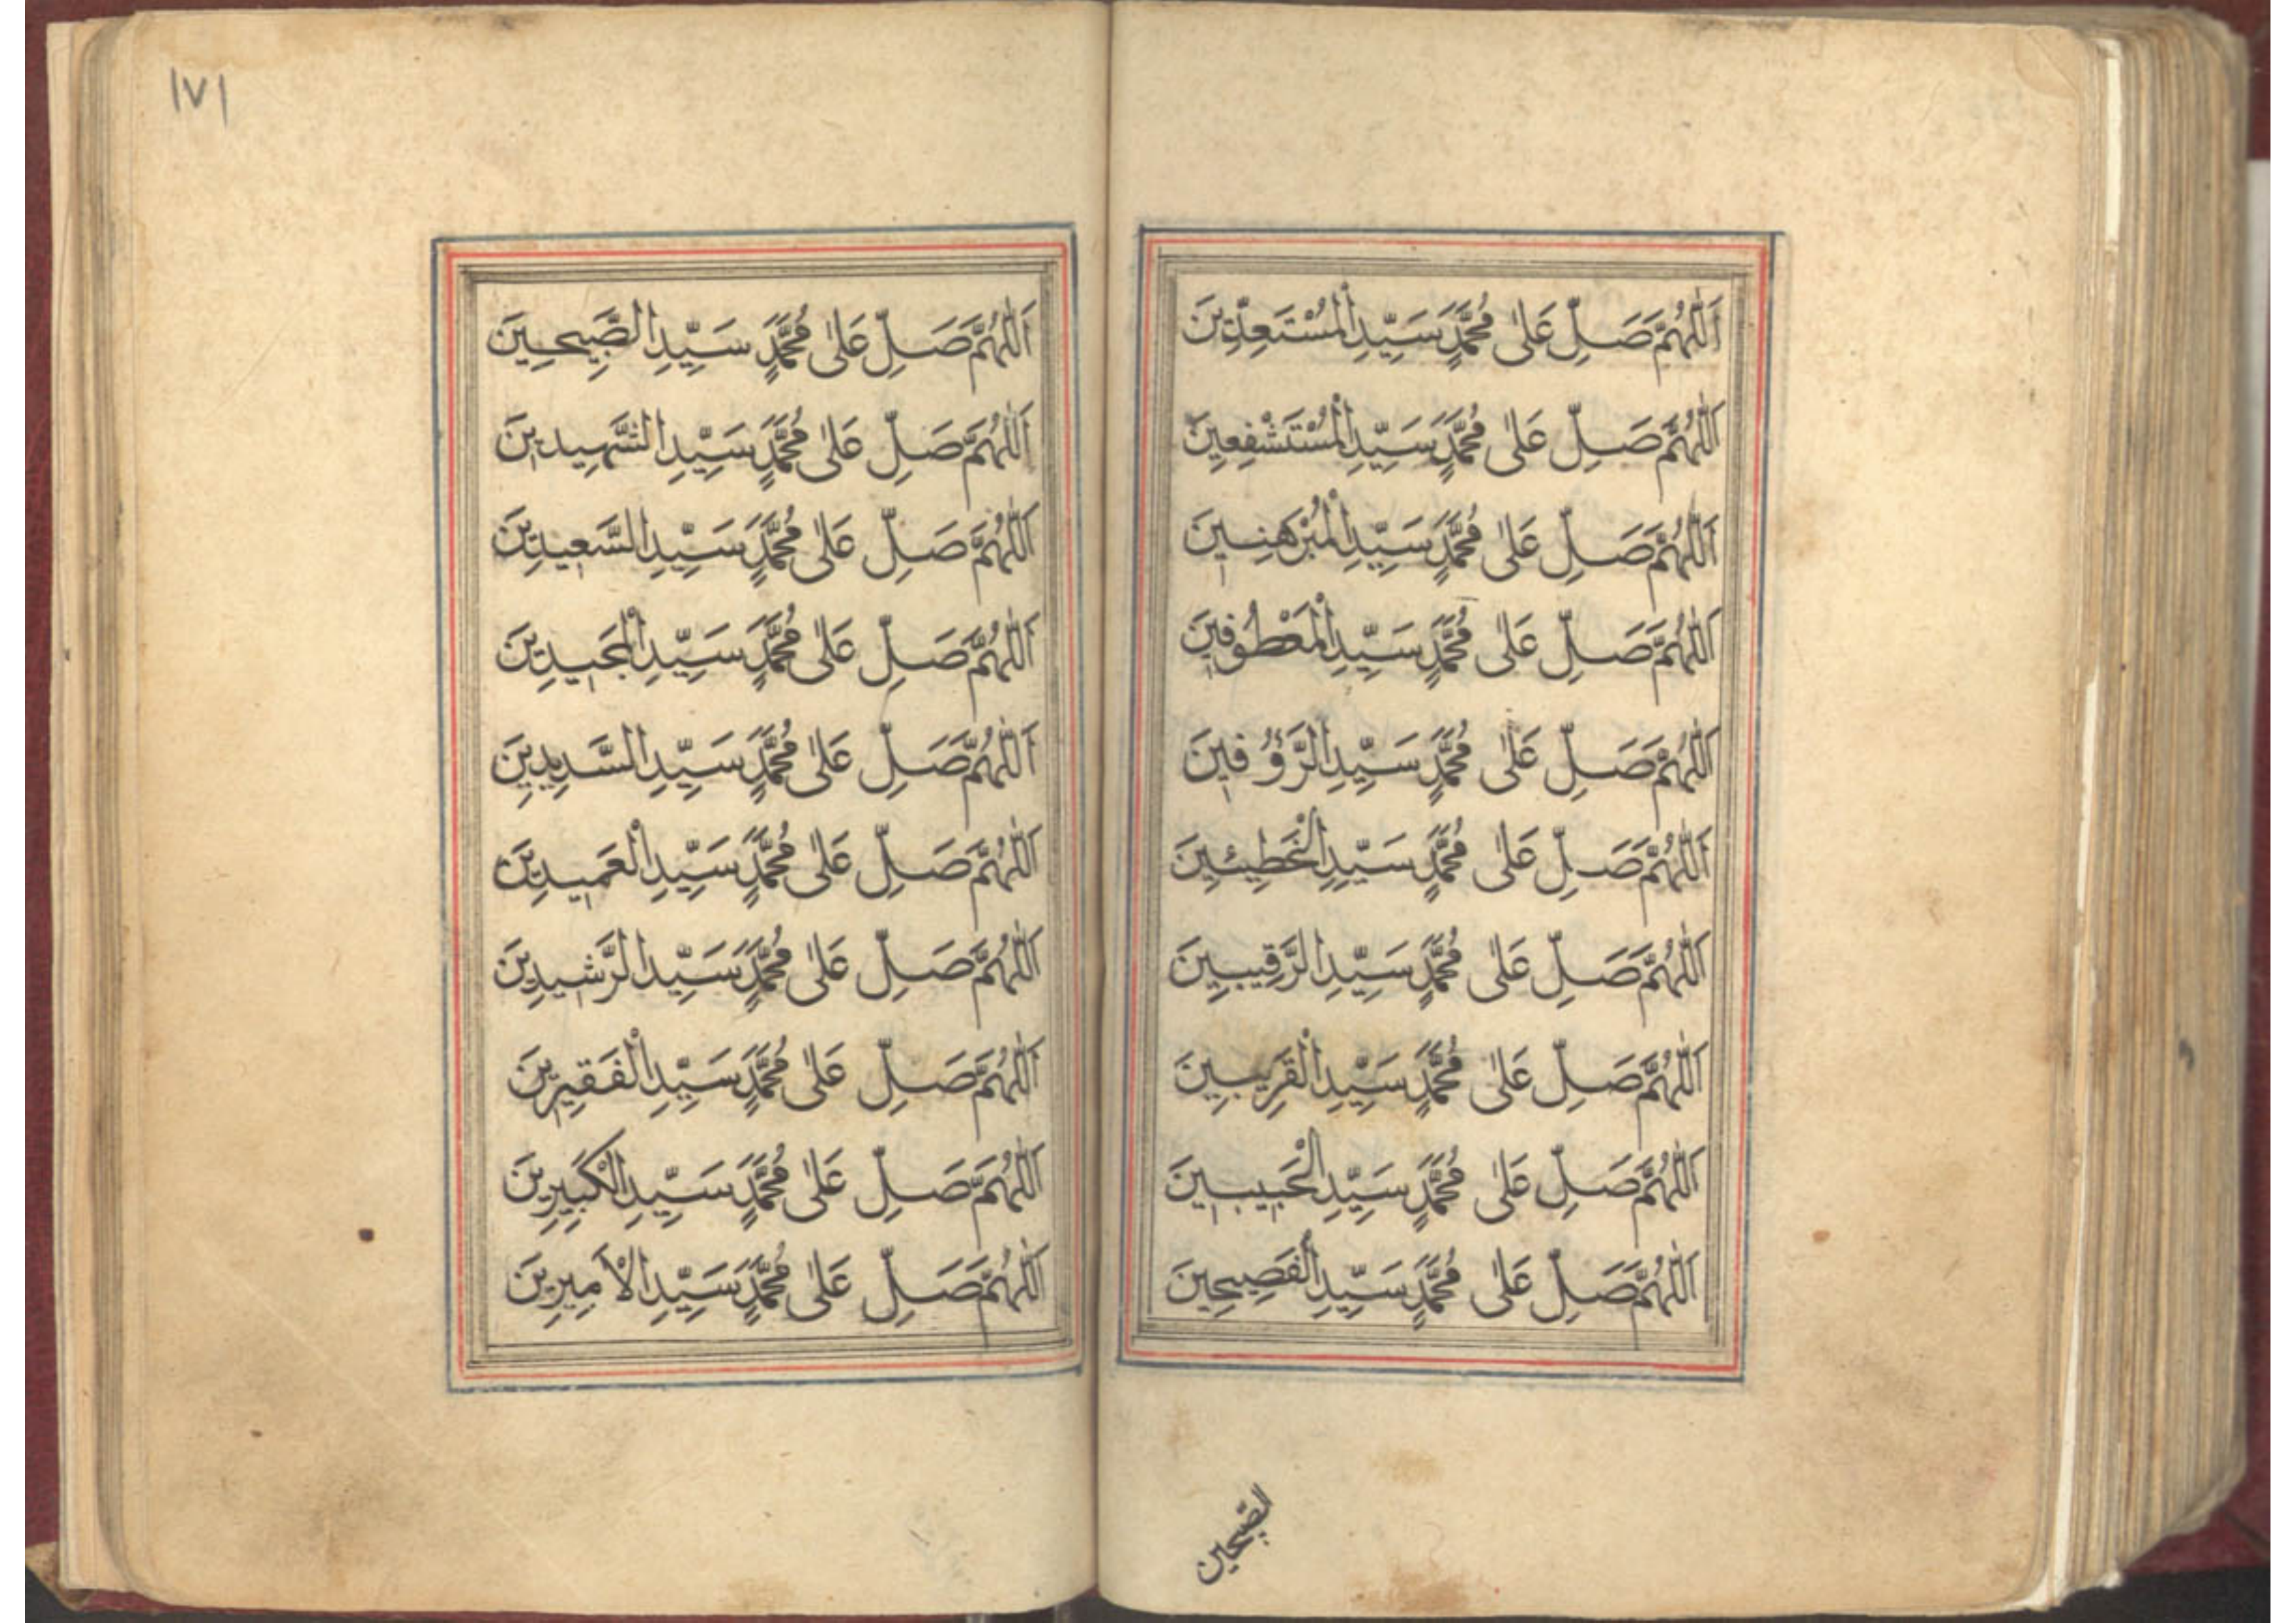 اَللّٰهُمَّ صَلِّ عَلٰى مُحَمَّدٍ سَيِّدِ
اَللّٰهُمَّ صَلِّ عَلٰى مُحَمَّدٍ سَيِّدِ الْمُسْتَشْفِعِينَ
اَللّٰهُمَّ صَلِّ عَلٰى مُحَمَّدٍ سَيِّدِ الْمُبَرْهَنِينَ
اَللّٰهُمَّ صَلِّ عَلٰى مُحَمَّدٍ سَيِّدِ
اَللّٰهُمَّ صَلِّ عَلٰى مُحَمَّدٍ سَيِّدِ الرَّؤُفِينَ
اَللّٰهُمَّ صَلِّ عَلٰى مُحَمَّدٍ سَيِّدِ
اَللّٰهُمَّ صَلِّ عَلٰى مُحَمَّدٍ سَيِّدِ الرَّقِيبِينَ
اَللّٰهُمَّ صَلِّ عَلٰى مُحَمَّدٍ سَيِّدِ الْقَرِيبِينَ
اَللّٰهُمَّ صَلِّ عَلٰى مُحَمَّدٍ سَيِّدِ الْحَبِيبِينَ
اَللّٰهُمَّ صَلِّ عَلٰى مُحَمَّدٍ سَيِّدِ الْفَصِيحِينَ
الصَّبِيحِين
١٧١
اَللّٰهُمَّ صَلِّ عَلٰى مُحَمَّدٍ سَيِّدِ الصَّبِيحِينَ
اَللّٰهُمَّ صَلِّ عَلٰى مُحَمَّدٍ سَيِّدِ الشَّهِيدِينَ
اَللّٰهُمَّ صَلِّ عَلٰى مُحَمَّدٍ سَيِّدِ السَّعِيدِينَ
اَللّٰهُمَّ صَلِّ عَلٰى مُحَمَّدٍ سَيِّدِ الْمَجِيدِينَ
اَللّٰهُمَّ صَلِّ عَلٰى مُحَمَّدٍ سَيِّدِ السَّدِيدِينَ
اَللّٰهُمَّ صَلِّ عَلٰى مُحَمَّدٍ سَيِّدِ الْعَمِيدِينَ
اَللّٰهُمَّ صَلِّ عَلٰى مُحَمَّدٍ سَيِّدِ الرَّشِيدِينَ
اَللّٰهُمَّ صَلِّ عَلٰى مُحَمَّدٍ سَيِّدِ الْفَقِيرِينَ
اَللّٰهُمَّ صَلِّ عَلٰى مُحَمَّدٍ سَيِّدِ الْكَبِيرِينَ
اَللّٰهُمَّ صَلِّ عَلٰى مُحَمَّدٍ سَيِّدِ الْاَمِيرِينَ